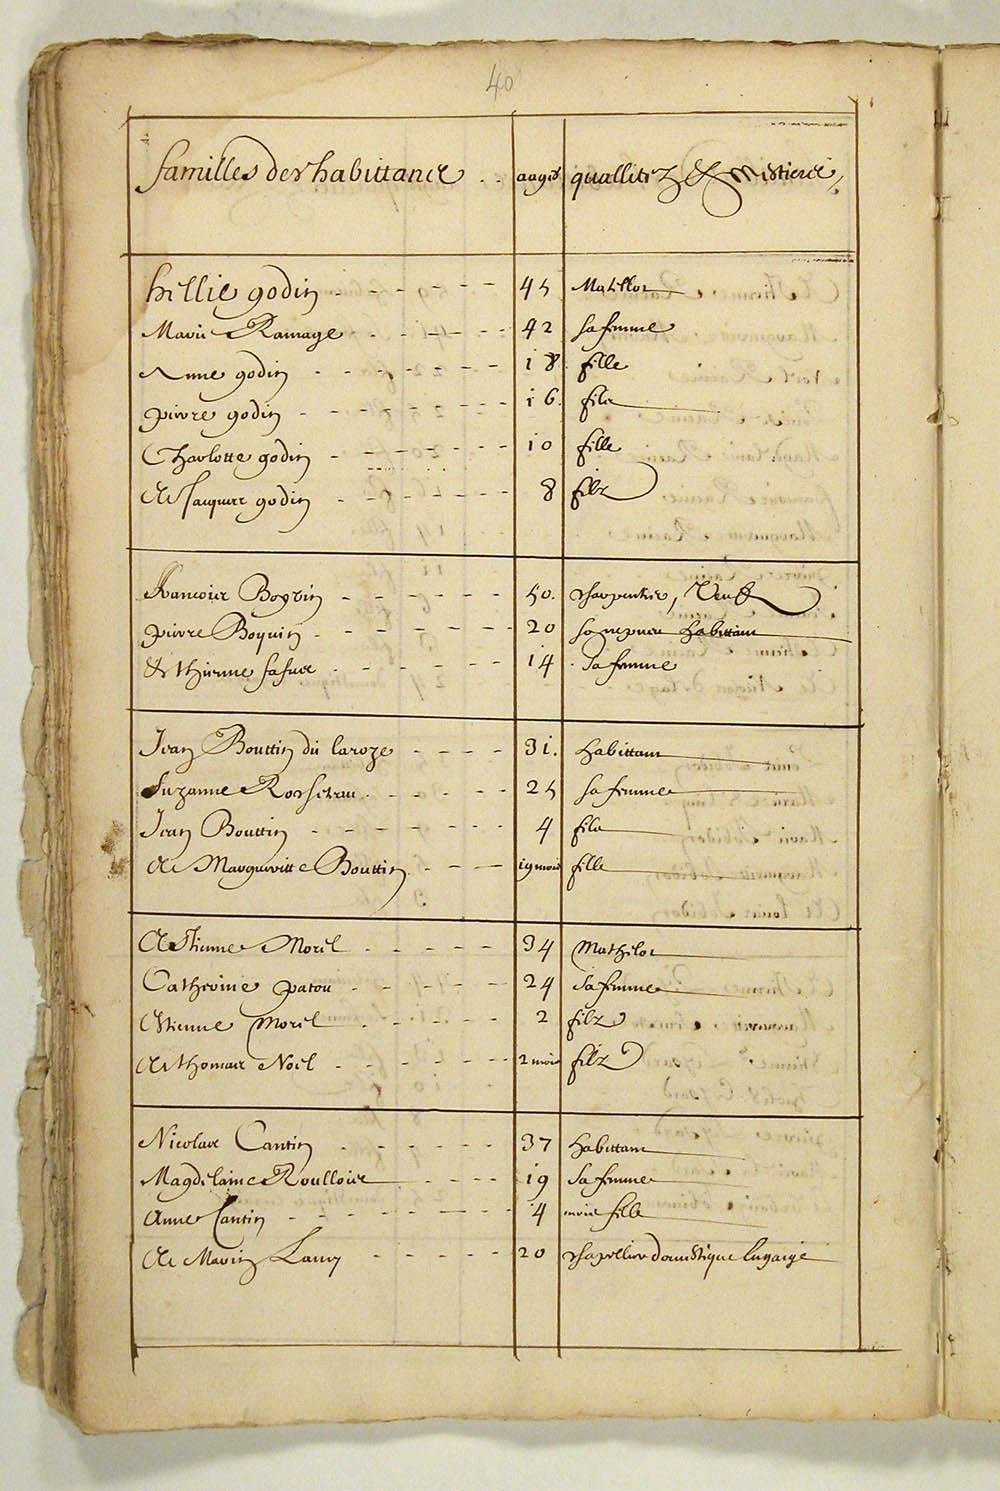 40
familles des habittans . . aages quallitez & mestiers /.
hellie godin - - - - - 45 Matellot
Marie Ramage - - - - 42 sa femme
Anne godin - - - - - 18 . fille
pierre godin - - - - - 16 . fils
Charlotte godin - - - - - 10 fille
& Jacques godin - - - - - 8 filz
francois Boyvin - - - - - 50. charpentier, Veuf
pierre Boyvin - - - - - 20 son nepueu habittant
& Sthienne - - - - - 14 . Sa femme
Jean Bouttin du laroze - - - - 31. habittant
Suzanne Rosseteau - - - - 25 sa femme
Jean Bouttin - - - - - 4 fils
& Margueritte Bouttin - - - 19 mois fille
Estienne Morel - - - - 34 Mathelot
Catherine patou - - - - - 24 Sa femme
Estienne Morel - - - - 2 filz
& thomas Noel - - - - - 2 mois filz
Nicolas Cantin - - - - - 37 habittant
Magdelaine Roullois - - - - 19 Sa femme
Anne Cantin - - - - - 4 mois fille
& Marin Lamy - - - - - 20 chapellier domestique Engaigé